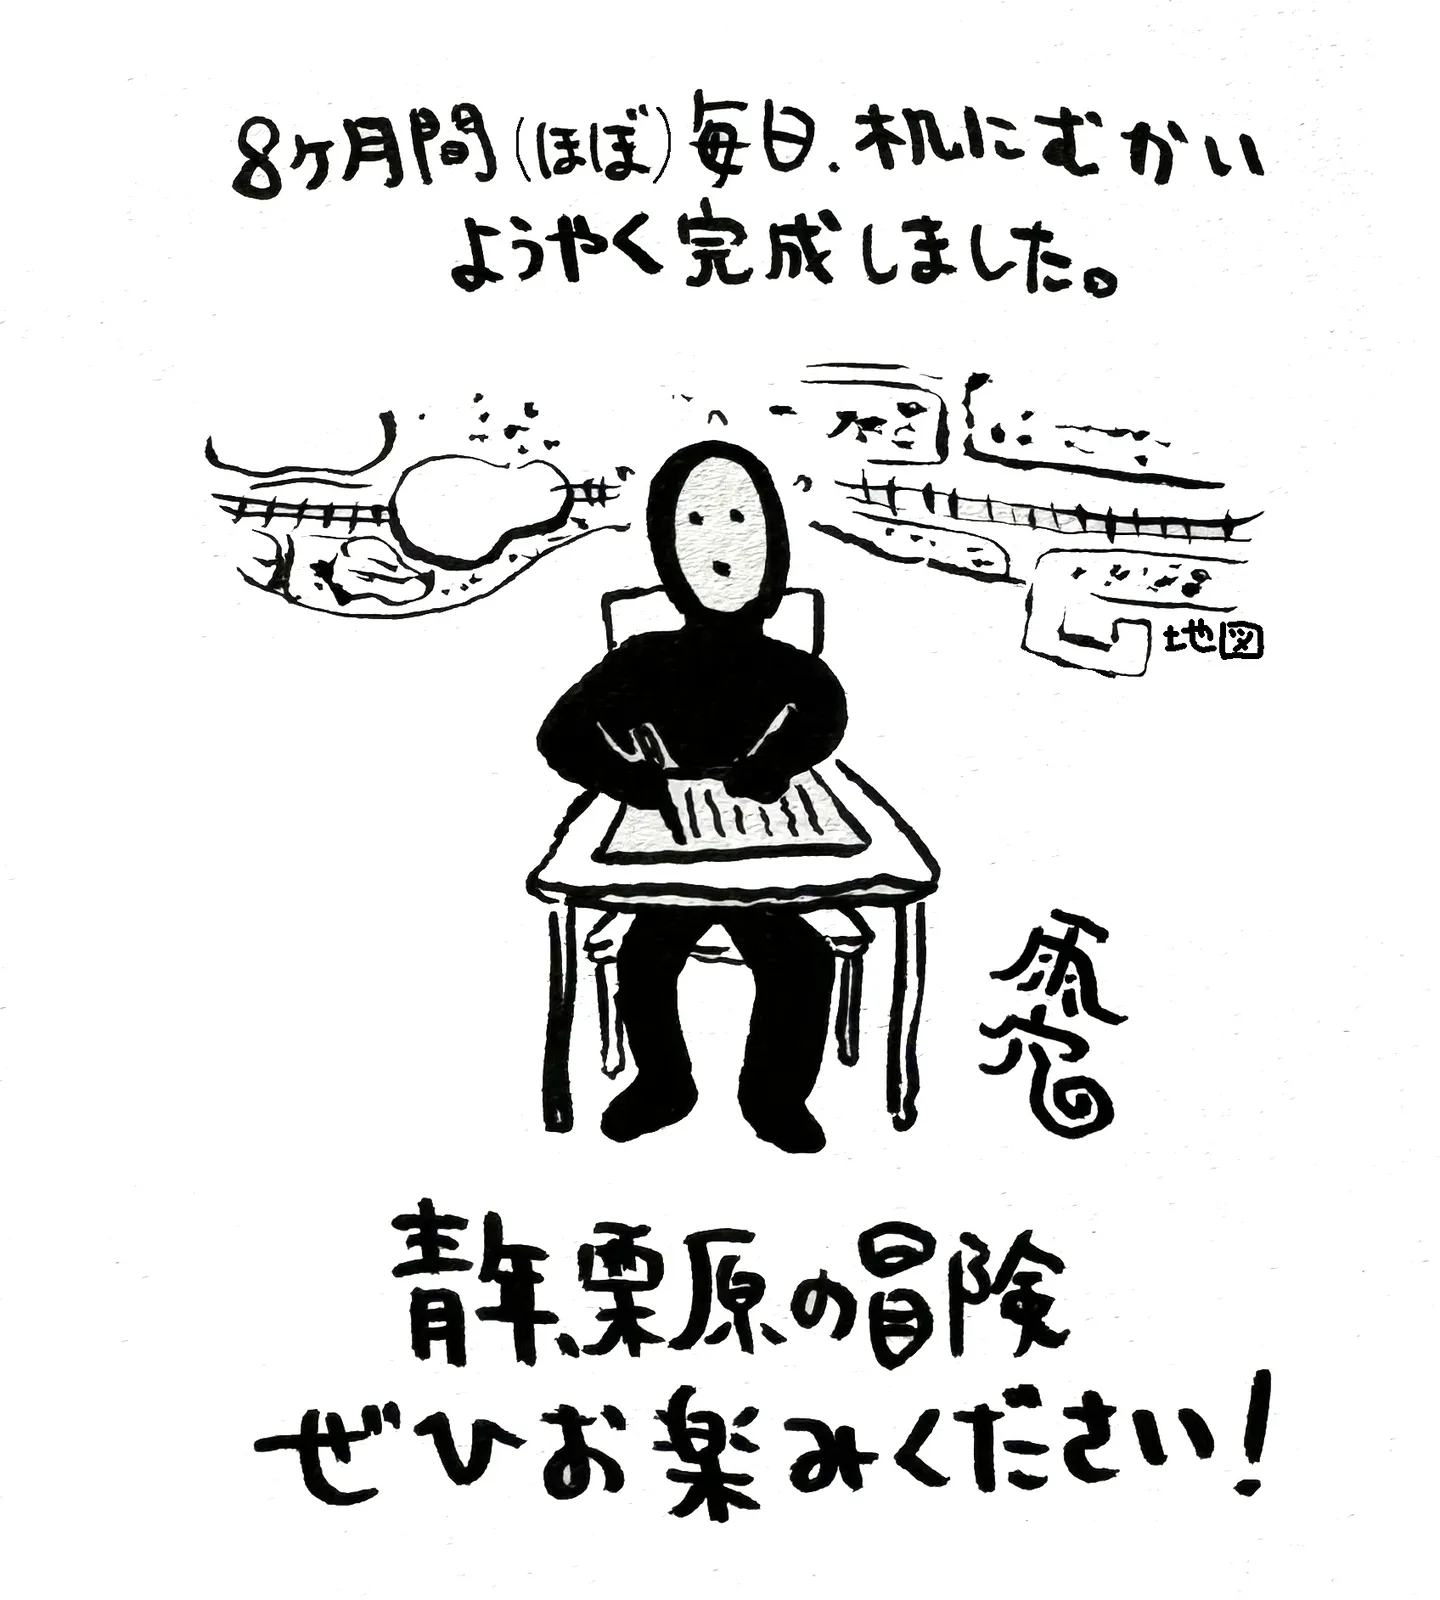 8ヶ月間(ほぼ)毎日、机にむかい
ようやく完成しました。
地図
雨穴
青年、栗原の冒険
ぜひお楽しみください！